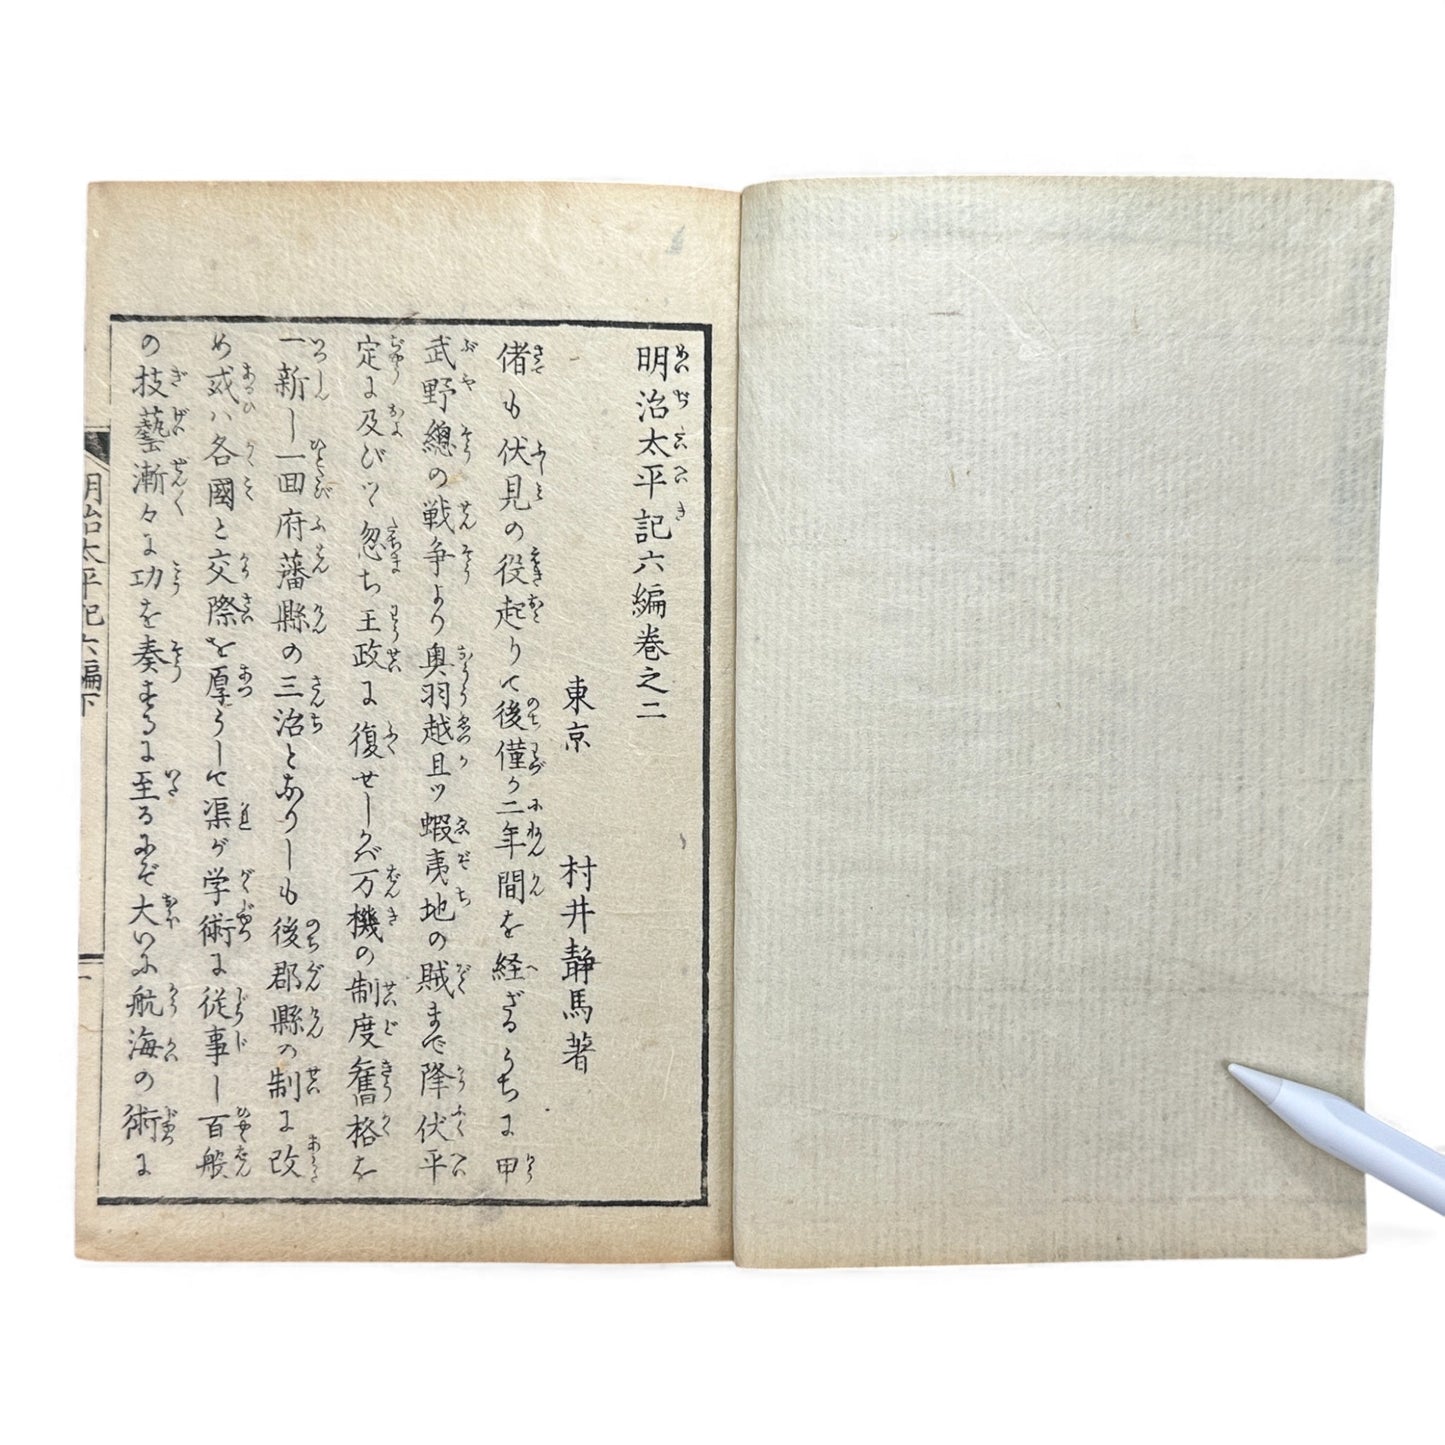 明治太平記六編巻之二
東京　村井靜馬著
偖も伏見の役起りて後僅か二年間を経ざるうちに甲
武野總の戦争より奥羽越且ッ蝦夷地の賊まで降伏平
定に及びツヽ忽ち王政に復せしかバ万機の制度舊格を
一新し一回府藩縣の三治となりしも後郡縣の制に改
め或ハ各國と交際を厚うして渠が学術に従事し百般
の技藝漸々に功を奏するに至るにぞ大いに航海の術に
明治太平記六編下
一